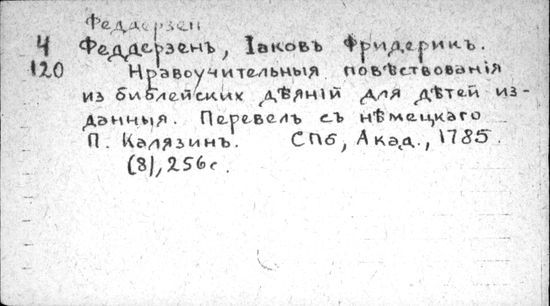 Феддерзен
4 Феддерзенъ, Iаковъ Фридерикъ.
120 Нравоучительныя повѣствованiя
из библейских дѣянiй для дѣтей из-
данныя. Перевелъ съ нѣмецкаго
П. Калязинъ. СПб, Акад., 1785.
(8), 256с.